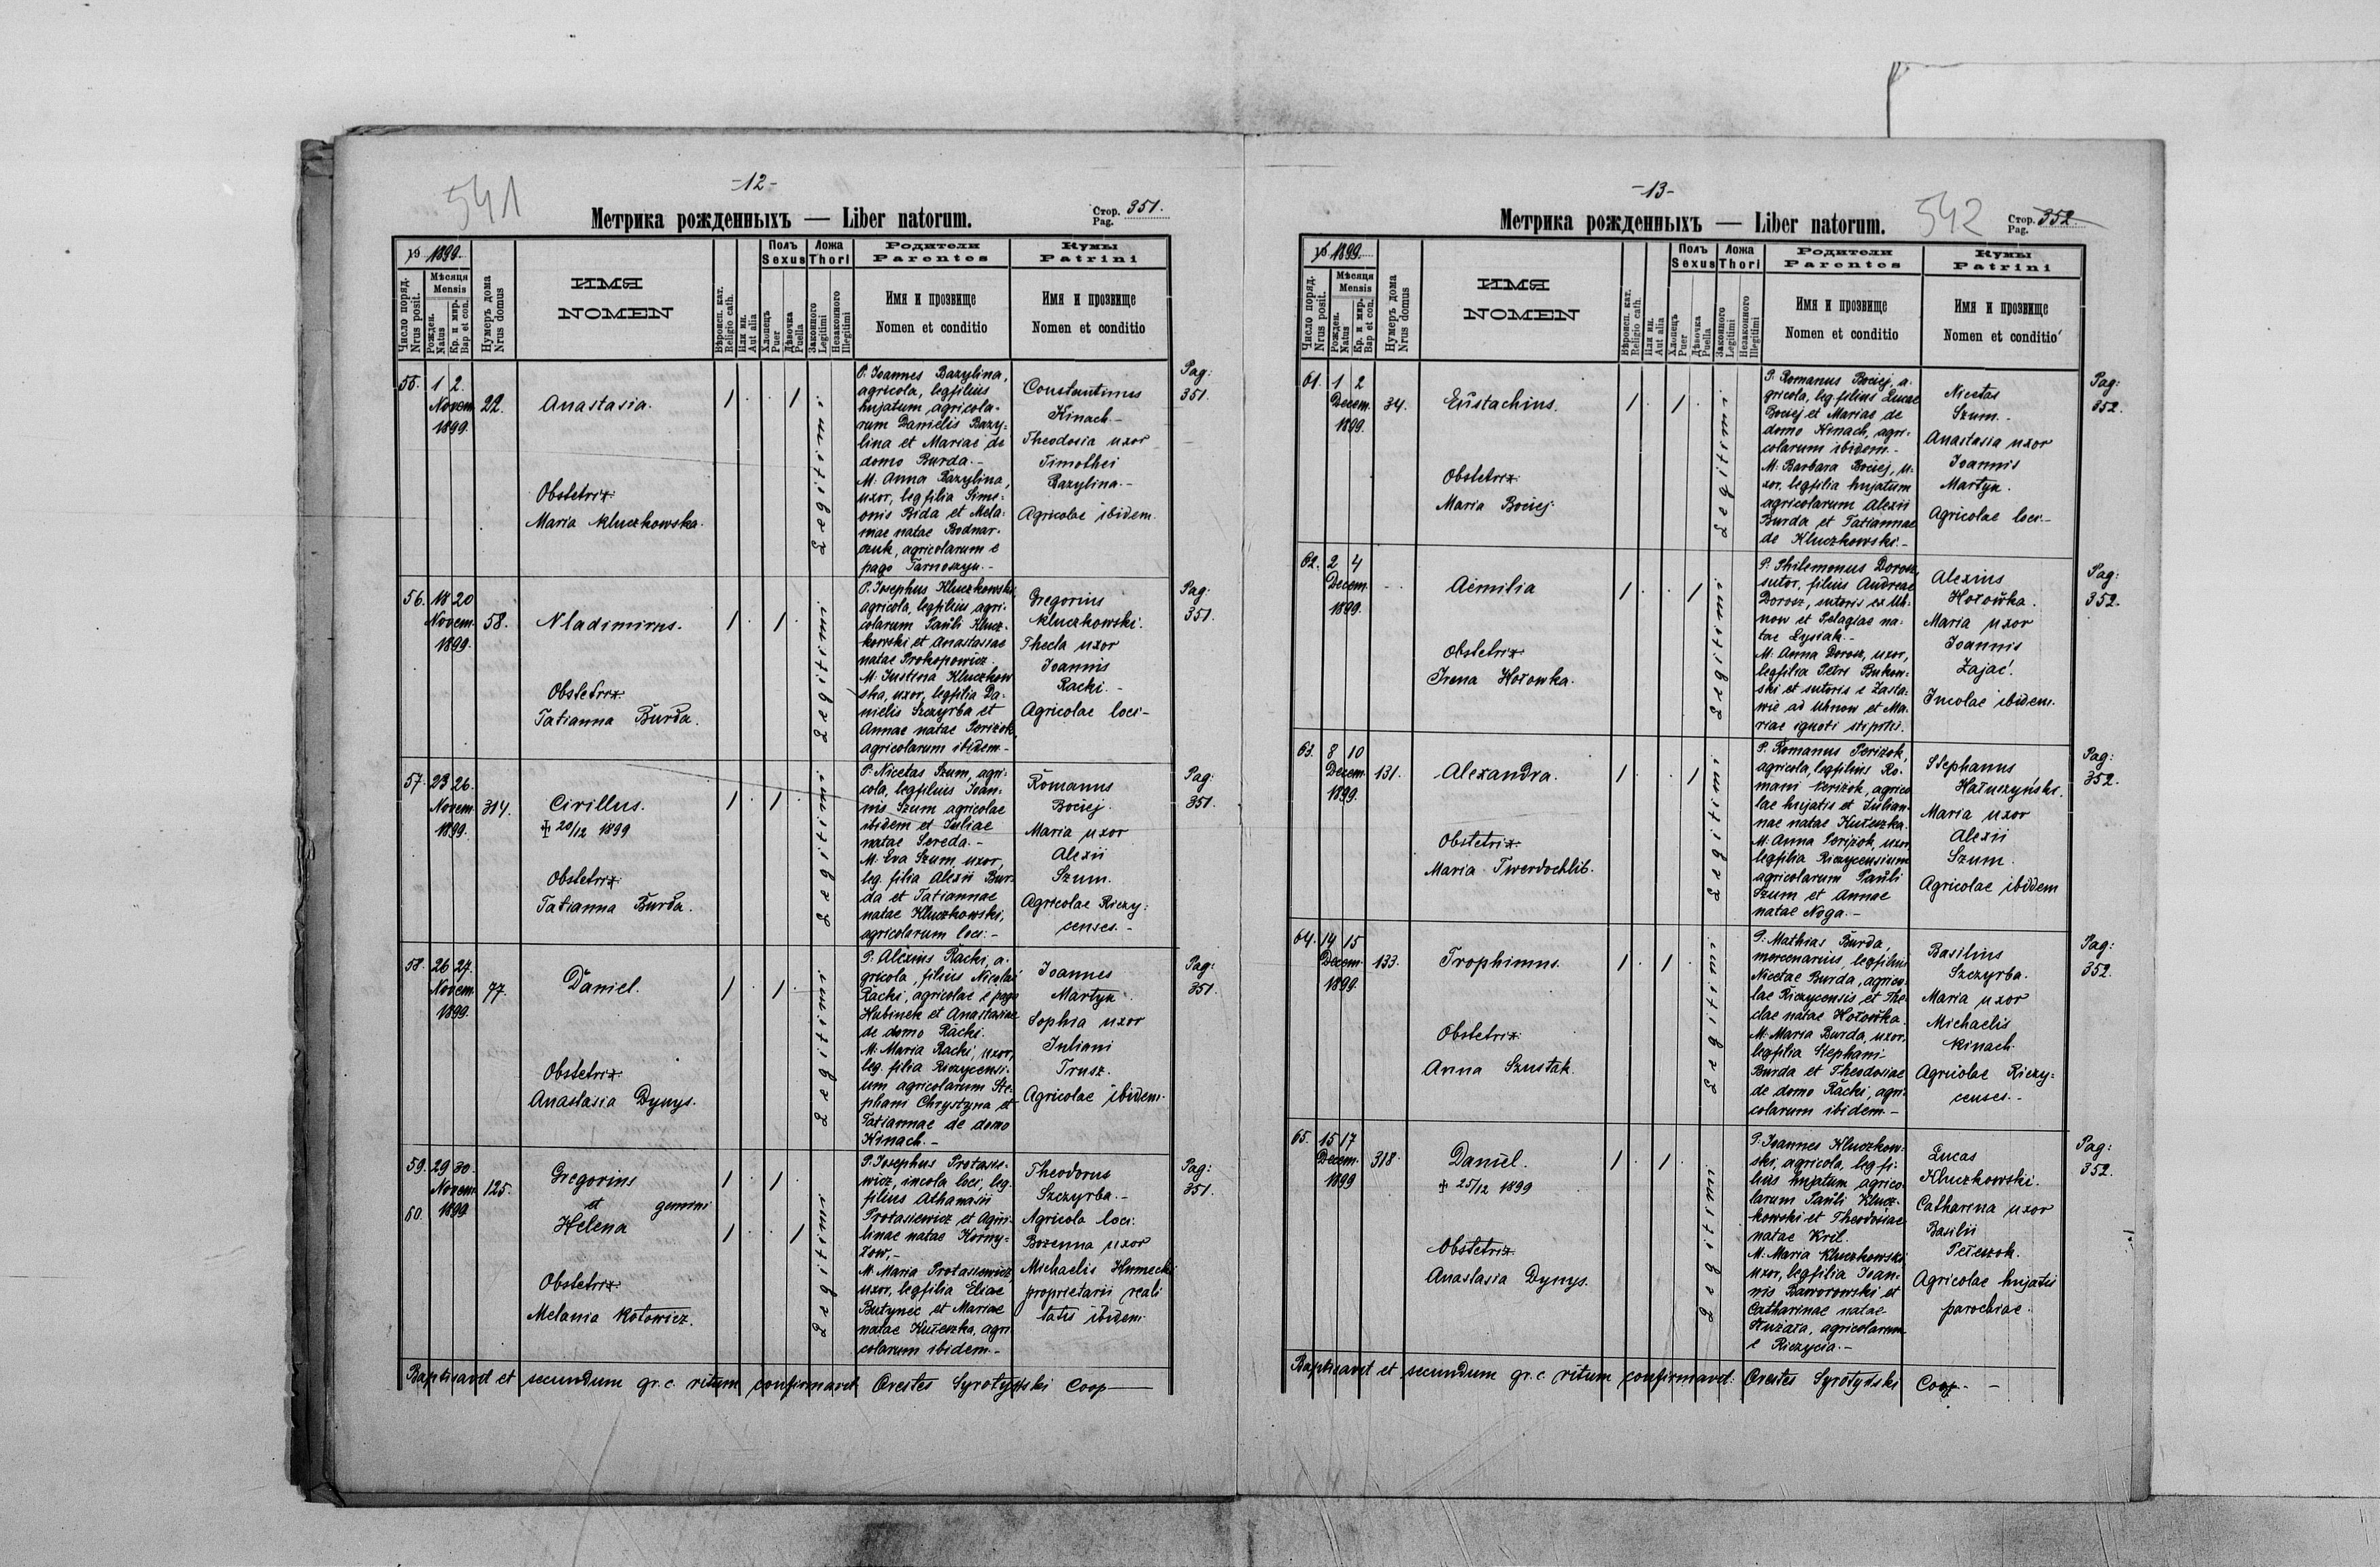 541
-12-
Метрика рожденныхъ — Liber natorum.
Стор. Pag. 351.
19 1899.
Число поряд. Nrus posit.
Мѣсяця Mensis
Рожден. Natus
Кр. и мир. Bap et con.
Нумеръ дома Nrus domus
ИМЯ
NOMEN
Вѣроисп. кат. Religio cath.
Или ин. Aut alia
Полъ Sexus
Хлопецъ Puer
Дѣвочка Puella
Ложа Thori
Законного Legitimi
Незаконного Illegitimi
Родители
Parentes
Имя и прозвище
Nomen et conditio
Кумы
Patrini
Имя и прозвище
Nomen et conditio
55. 1 2.
Novem. 22.
1899.
Anastasia.
Obstetrix
Maria Kluczkowska.
Legitimi
P. Joannes Bazylina,
agricola, leg filius
hujatum agricola-
rum Danielis Bazy-
lina et Mariae de
domo Burda.-
M: Anna Bazylina,
uxor, leg filia Sime-
onis Bida et Mela-
niae natae Bodnar-
czuk, agricolarum e
pago Tarnoszyn.-
Constantinus
Kinach.-
Theodosia uxor
Timothei
Bazylina.-
Agricolae ibidem.
Pag:
351.
56. 18 20
Novem. 58.
1899.
Wladimirus.
Obstetrix
Tatianna Burda.
Legitimi
P. Josephus Kluczkowski,
agricola, leg filius agri-
colarum Pauli Klucz-
kowski et Anastasiae
natae Prokopowicz.
M: Justina Kluczkow
ska, uxor, leg filia Da-
nielis Szczyrba et
Annae natae Perizok,
agricolarum ibidem.-
Gregorius
Kluczkowski.
Thecla uxor
Joannis
Racki.-
Agricolae loci-
Pag:
351.
57. 23 26.
Novem. 314.
1899.
Cirillus.
✝ 20/12 1899
Obstetrix
Tatianna Burda.
Legitimi
P: Nicetas Szum, agri-
cola, leg filius Joan-
nis Szum agricolae
ibidem et Juliae
natae Sereda.-
M: Eva Szum, uxor,
leg. filia Alexii Bur-
da et Tatiannae
natae Kluczkowski,
agricolarum loci.-
Romanus
Bociej.
Maria uxor
Alexii
Szum.
Agricolae Riczy-
censes.-
Pag:
351.
58. 26 27.
Novem. 77.
1899.
Daniel.
Obstetrix
Anastasia Dynys.
Legitimi
P. Alexius Racki, a-
gricola, filius Nicolai
Racki, agricolae e pago
Hubinek et Anastasiae
de domo Racki.
M: Maria Racki, uxor,
leg. filia Riczycensi-
um agricolarum Ste-
phani Chrystyna et
Tatiannae de domo
Kinach.-
Joannes
Martyn.
Sophia uxor
Juliani
Trusz.
Agricolae ibidem.
Pag:
351.
59. 29 30.
Novem. 125.
60. 1899
Gregorius
et gemini
Helena
Obstetrix
Melania Kotowicz.
Legitimi
P. Josephus Protasie-
wicz, incola loci, leg.
filius Athanasii
Protasiewicz et Aqui-
linae natae Korny-
low,-
M: Maria Protasiewicz,
uxor, leg filia Eliae
Butynec et Mariae
natae Kułeszka, agri-
colarum ibidem.-
Theodorus
Szczyrba.-
Agricola loci.
Bozenna uxor
Michaelis Humecki
proprietarii reali
tatis ibidem
Pag:
351.
Baptisavit et secundum gr. c. ritum confirmavit Orestes Syrotyński Coop
-13-
542
Метрика рожденныхъ — Liber natorum.
Стор. Pag. 352.
19 1899.
Число поряд. Nrus posit.
Мѣсяця Mensis
Рожден. Natus
Кр. и мир. Bap et con.
Нумеръ дома Nrus domus
ИМЯ
NOMEN
Вѣроисп. кат. Religio cath.
Или ин. Aut alia
Полъ Sexus
Хлопецъ Puer
Дѣвочка Puella
Ложа Thori
Законного Legitimi
Незаконного Illegitimi
Родители
Parentes
Имя и прозвище
Nomen et conditio
Кумы
Patrini
Имя и прозвище
Nomen et conditio
61. 1 2
Decem. 34.
1899.
Eustachius.
Obstetrix
Maria Bociej.
Legitimi
P. Romanus Bociej, a-
gricola, leg filius Lucae
Bociej et Mariae de
domo Kinach, agri-
colarum ibidem.-
M: Barbara Bociej, u-
xor, leg filia hujatum
agricolarum Alexii
Burda et Tatiannae
de Kluczkowski.-
Nicetas
Szum.-
Anastasia uxor
Joannis
Martyn.
Agricolae loci.-
Pag:
352.
62. 2 4
Decem.
1899.
Aemilia
Obstetrix
Irena Hołowka.
Legitimi
P. Philemonus Dorosz,
sutor, filius Andreae
Dorosz, sutoris ex Uh-
now et Pelagiae na-
tae Lysiak.-
M: Anna Dorosz, uxor,
leg filia Petri Bukow-
ski et sutoris e Zasta-
wie ad Uhnow et Ma-
riae ignoti stipitis.
Alexius
Hołowka.
Maria uxor
Joannis
Zając.
Incolae ibidem.
Pag:
352.
63. 8 10
Decem. 131.
1899.
Alexandra.
Obstetrix
Maria Twerdochlib.
Legitimi
P. Romanus Perizok,
agricola, leg filius Ro-
mani Perizok, agrico
lae hujatis et Julian-
nae natae Kułeszka.
M: Anna Perizok, uxor
leg filia Riczycensium
agricolarum Pauli
Szum et Annae
natae Noga.-
Stephanus
Hałuszyński.
Maria uxor
Alexii
Szum.
Agricolae ibidem
Pag:
352.
64. 14 15
Decem. 133.
1899.
Trophimus.
Obstetrix
Anna Szustak.
Legitimi
P: Mathias Burda,
mercenarius, leg filius
Nicetae Burda, agrico-
lae Riczycensis et The-
clae natae Hołowka.
M: Maria Burda, uxor,
leg filia Stephani
Burda et Theodosiae
de domo Racki, agri-
colarum ibidem.-
Basilius
Szczyrba.
Maria uxor
Michaelis
Kinach.
Agricolae Riczy-
censes.-
Pag:
352.
65. 15 17
Decem. 318.
1899
Daniel.
✝ 25/12 1899
Obstetrix
Anastasia Dynys.
Legitimi
P. Joannes Kluczkow-
ski, agricola, leg fi-
lius hujatum agrico-
larum Pauli Klucz-
kowski et Theodosiae
natae Kril.
M: Maria Kluczkowski
uxor, leg filia Joan-
nis Baworowski et
Catharinae natae
agricolarum
e Riczycia.-
Lucas
Kluczkowski.
Catharina uxor
Basilii
Agricolae hujatis
parochiae.
Pag:
352.
Baptisavit et secundum gr. c. ritum confirmavit: Orestes Syrotyński Coop.-